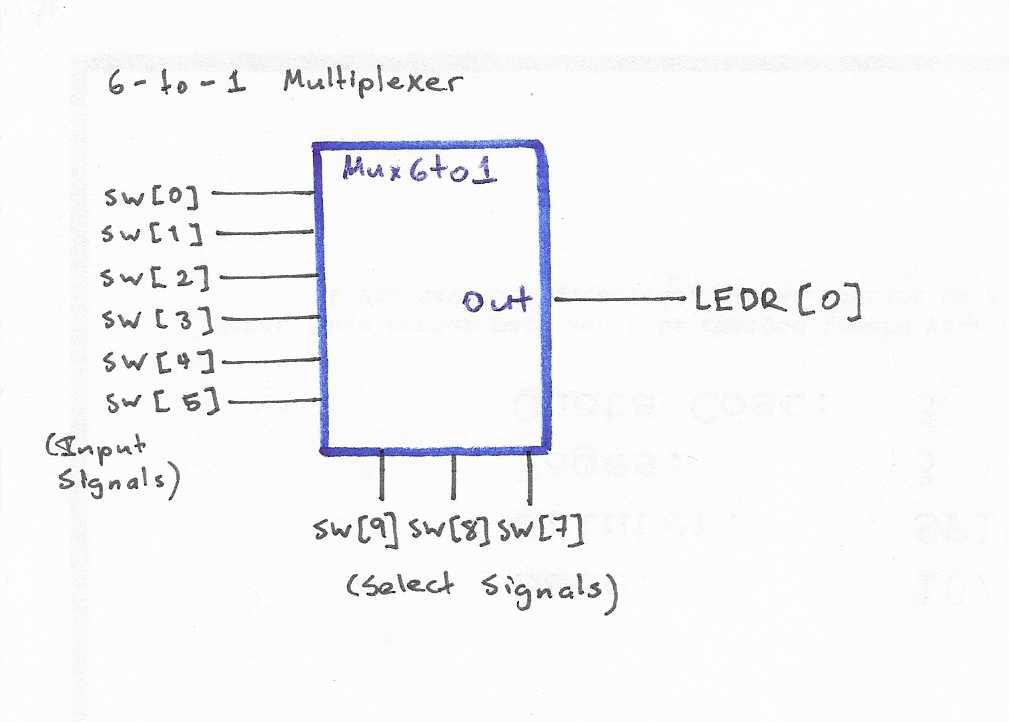 6-to-1 Multiplexer
Mux6to1
SW[0]
SW[1]
SW[2]
SW[3]
SW[4]
SW[5]
(Input
Signals)
Out
LEDR[0]
SW[9] SW[8] SW[7]
(Select Signals)